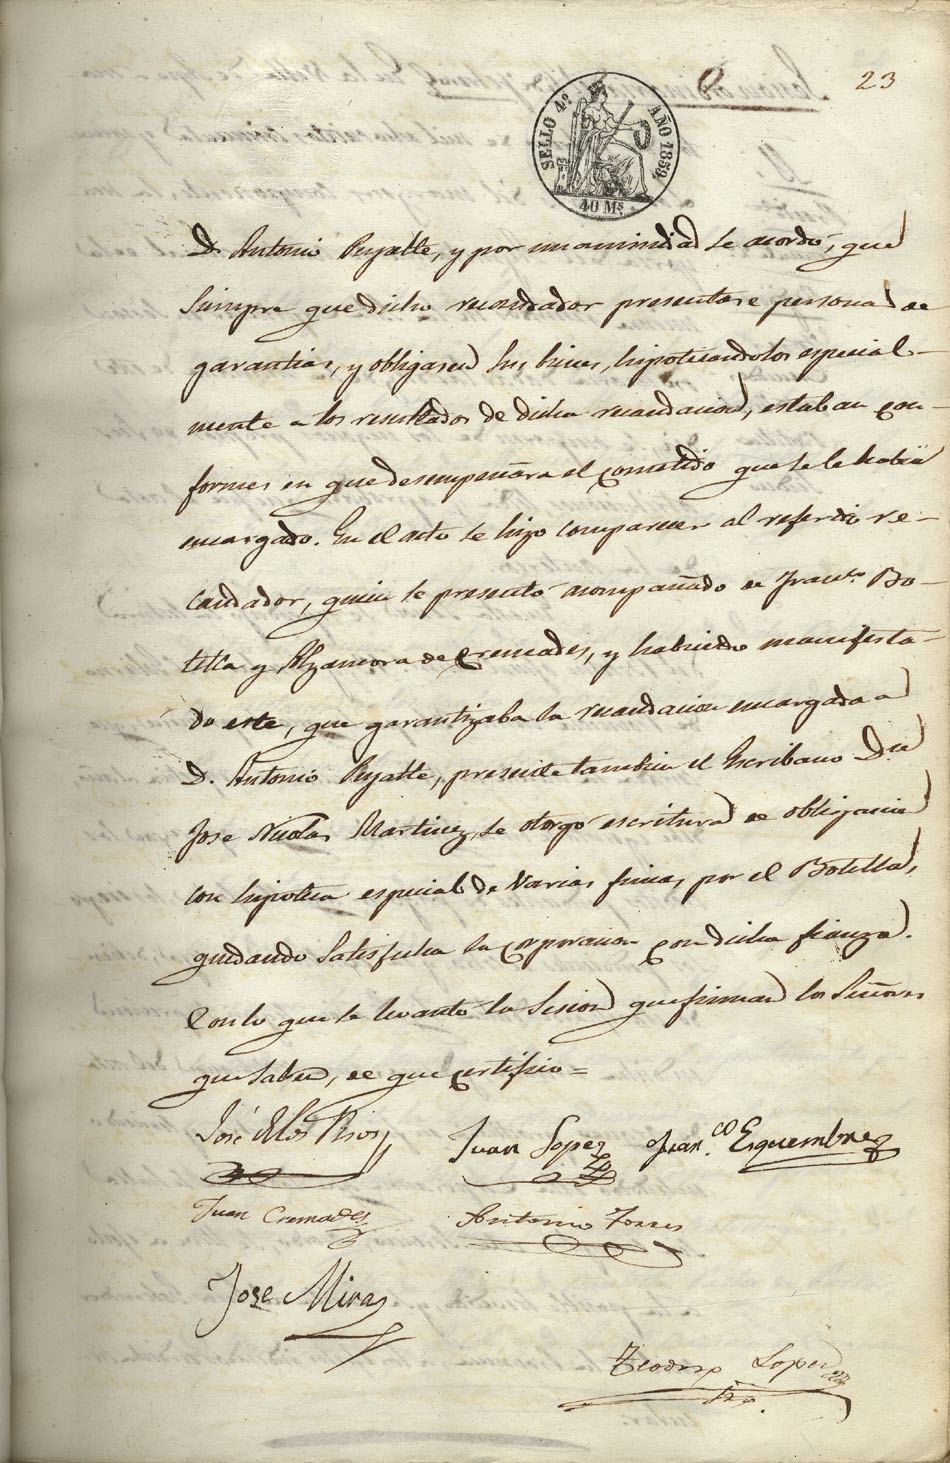 23
SELLO 4º AÑO 1859
40 Ms
D. Antonio Puyalte, y por unanimidad se acordó, que
siempre que dicho recaudador presentare persona de
garantias, y obligasen sus bienes, hipotecandolos especial-
mente a los resultados de dicha recaudacion, estaban con-
formes en que desempeñara el cometido que se le habia
encargado. En el acto se hizo comparecer al referido re-
caudador, quien se presentó acompañado de Franco. Bo-
tella y Alzamora de Cremades, y habiendo manifesta-
do este, que garantizaba la recaudacion encargada a
D. Antonio Puyalte, presente tambien el Escribano Dn
Jose Nicolas Martinez, se otorgó escritura de obligacion
con hipoteca especial de varias fincas, por el Botella,
quedando satisfecha la corporacion con dicha fianza.
Con lo que se levantó la sesion que firman los Señores
que saben, de que certifico=
José de los Rios
Juan Lopez
Franco. Esquembre
Juan Cremades
Antonio Torres
Jose Mira
Teodoro Lopez